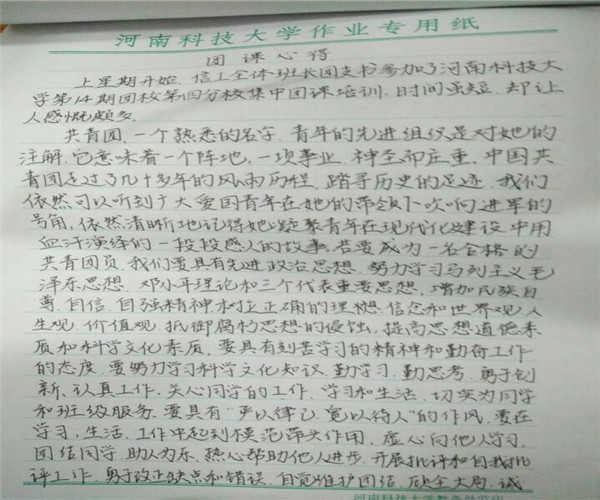 河南科技大学作业专用纸
团课心得
上星期开始,信工全体班长团支书参加了河南科技大
学第14期团校第四分校集中团课培训,时间虽短,却让
人感慨颇多
共青团,一个熟悉的名字,青年的先进组织是对她的
注解,它意味着一个阵地,一项事业,神圣而庄重,中国共
青团走过了几十多年的风雨历程,踏寻历史的足迹,我们
依然可以听到广大爱国青年在她的带领下吹响进军的
号角,依然清晰地记得她凝聚青年在现代化建设中用
血汗演绎的一段段感人的故事,若要成为一名合格的
共青团员,我们要具有先进政治思想,努力学习马列主义毛
泽东思想,邓小平理论和三个代表重要思想,增加民族自
尊,自信,自强精神,树立正确的理想,信念和世界观,人
生观,价值观,抵御腐朽思想的侵蚀,提高思想道德素
质和科学文化素质,要具有刻苦学习的精神和勤奋工作
的态度,要努力学习科学文化知识,勤学习,勤思考,勇于创
新,认真工作,关心同学的工作,学习和生活,切实为同学
和班级服务,要具有"严以律己,宽以待人"的作风,要在
学习,生活,工作中起到模范带头作用,虚心向他人学习,
团结同学,助人为乐,热心帮助他人进步,开展批评和自我批
评工作,勇于改正缺点和错误,自觉维护团结,顾全大局,诚